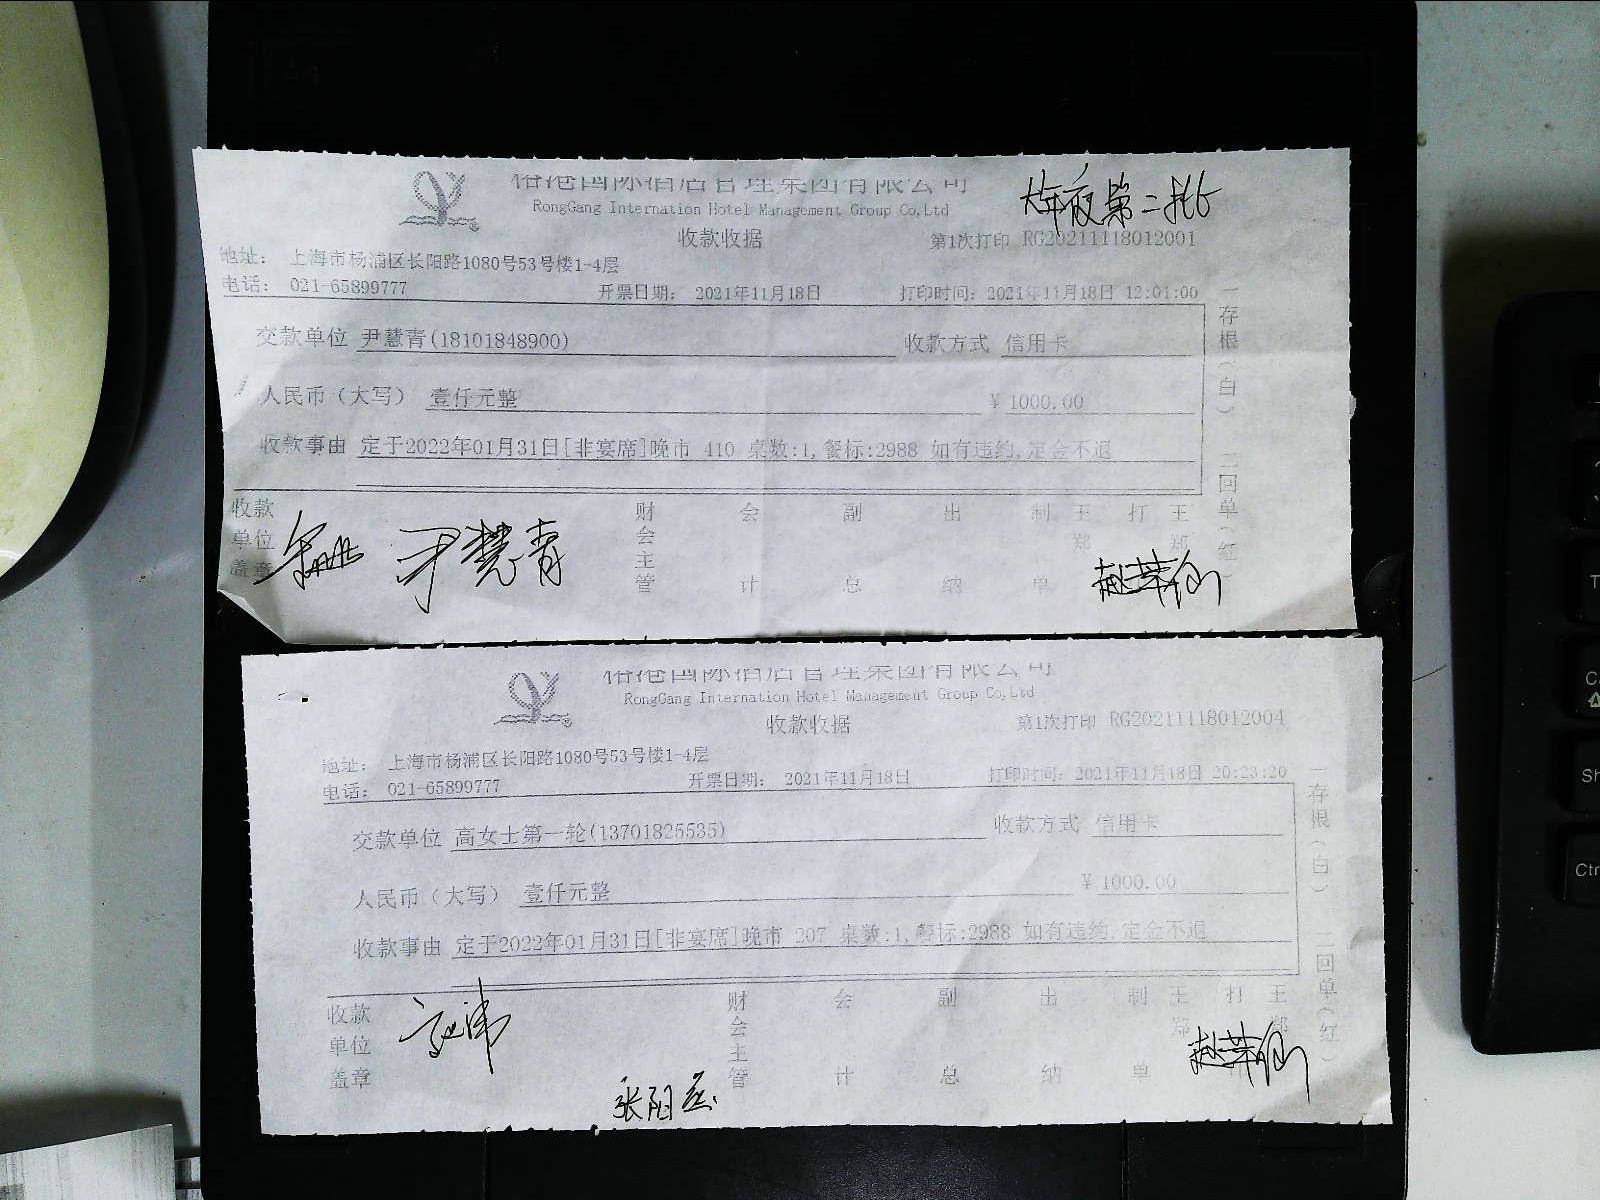 国际酒店管理集团有限公司
RongGang Internation Hotel Management Group Co,Ltd
大年夜第二批
收款收据
第1次打印 RG20211118012001
地址： 上海市杨浦区长阳路1080号53号楼1-4层
电话： 021-65899777 开票日期： 2021年11月18日 打印时间：2021年11月18日 12:01:00
交款单位 尹慧青(18101848900) 收款方式 信用卡
人民币（大写） 壹仟元整 ￥1000.00
收款事由 定于2022年01月31日[非宴席]晚市 410 桌数:1,餐标:2988 如有违约,定金不退
一存根（白） 二回单（红）
收款单位盖章 尹慧青 财会主管 会计 副总 出纳 制单 王郑 打 王郑 赵荣仙
国际酒店管理集团有限公司
RongGang Internation Hotel Management Group Co,Ltd
收款收据
第1次打印 RG20211118012004
地址： 上海市杨浦区长阳路1080号53号楼1-4层
电话： 021-65899777 开票日期： 2021年11月18日 打印时间：2021年11月18日 20:23:20
交款单位 高女士第一轮(13701825535) 收款方式 信用卡
人民币（大写） 壹仟元整 ￥1000.00
收款事由 定于2022年01月31日[非宴席]晚市 207 桌数:1,餐标:2988 如有违约,定金不退
一存根（白） 二回单（红）
收款单位盖章 财会主管 会计 副总 出纳 制单 王郑 打 王郑 赵荣仙
张阳